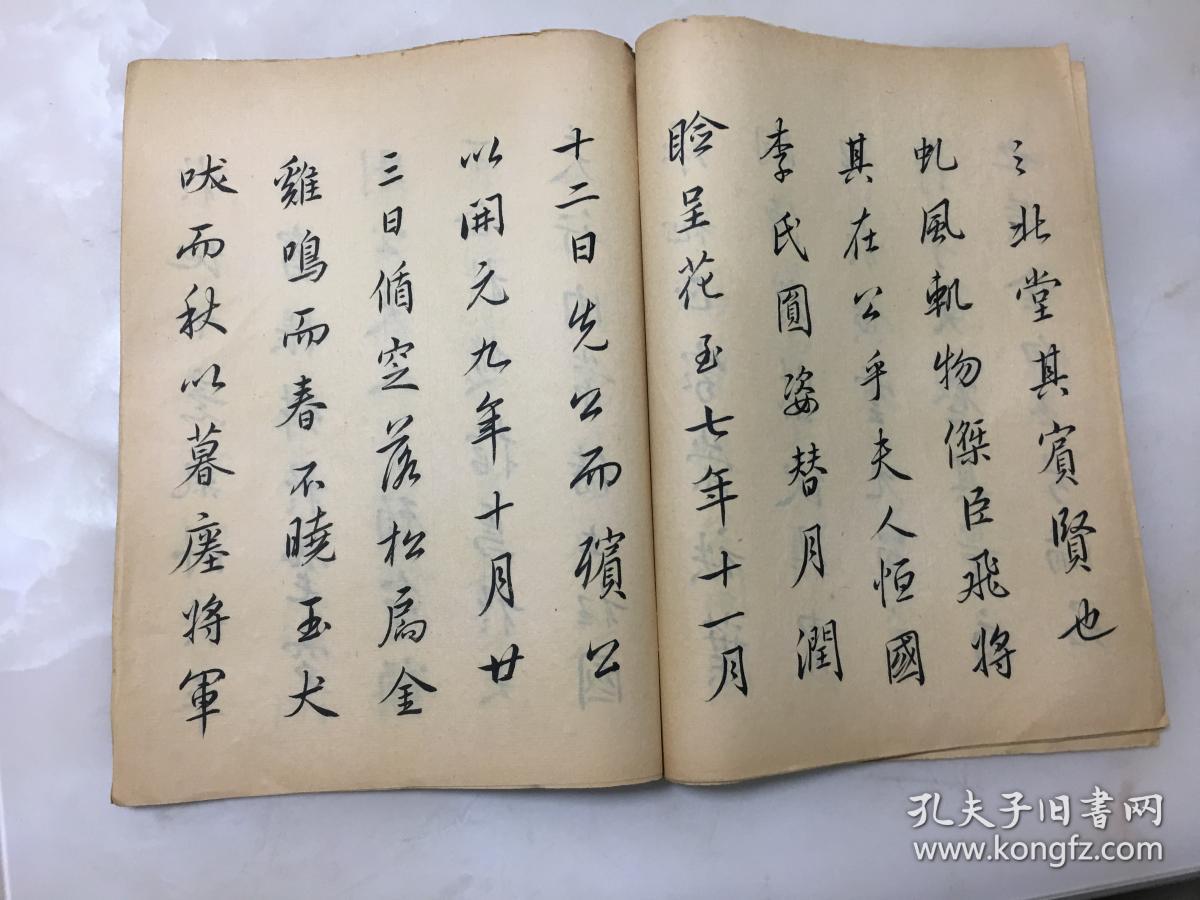 之北堂其賓賢也
虬風軌物傑臣飛將
其在公乎夫人恒國
李氏圓姿替月潤
臉呈花至七年十一月
十二日先公而殯公
以開元九年十月廿
三日循空落松扃金
雞鳴而春不曉玉犬
吠而秋以暮塵將軍
孔夫子旧书网
www.kongfz.com